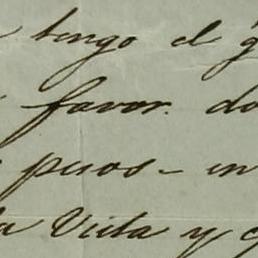 tengo el g
favor. do
pesos - en
la Viita y g